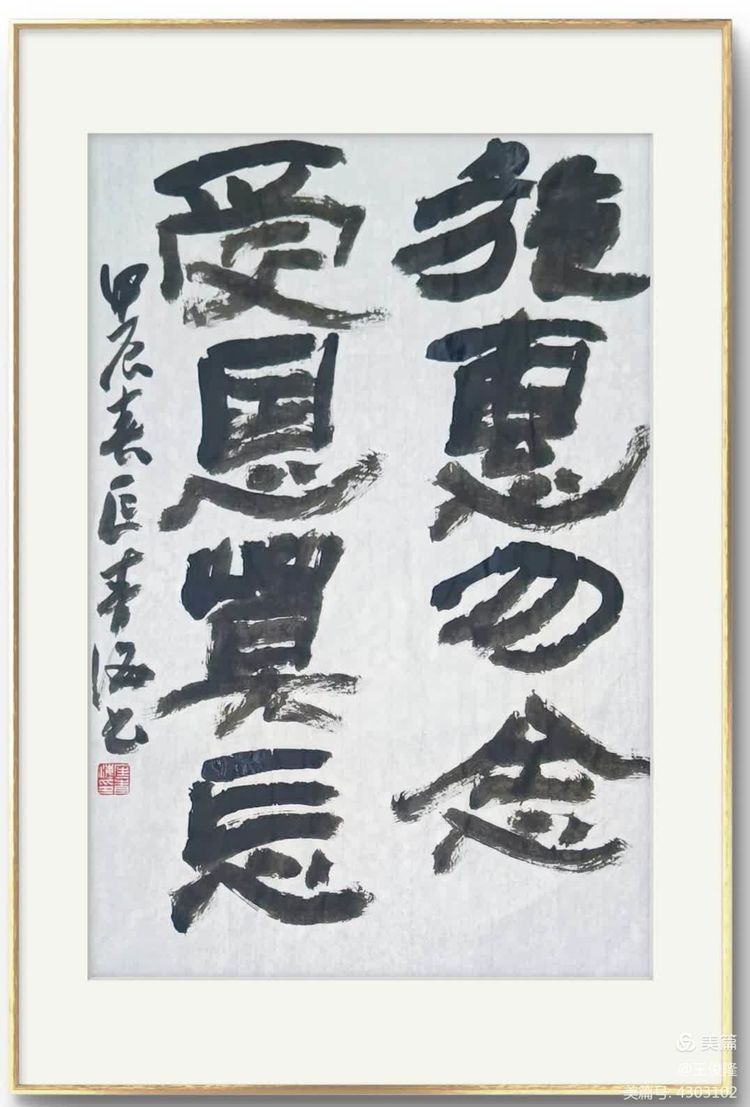 施惠勿念
受恩莫忘
甲辰春 书
美篇
@王俊隆
美篇号: 4303102